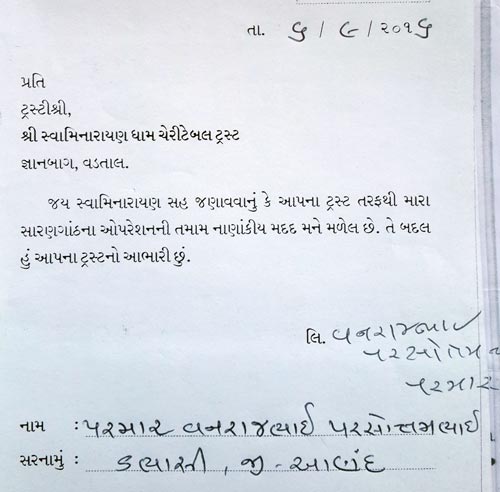 તા. ૬ / ૯ / ૨૦૧૬
પ્રતિ
ટ્રસ્ટીશ્રી,
શ્રી સ્વામિનારાયણ ધામ ચેરીટેબલ ટ્રસ્ટ
જ્ઞાનબાગ, વડતાલ.
જય સ્વામિનારાયણ સહ જણાવવાનું કે આપના ટ્રસ્ટ તરફથી મારા
સારણગાંઠના ઓપરેશનની તમામ નાણાંકીય મદદ મને મળેલ છે. તે બદલ
હું આપના ટ્રસ્ટનો આભારી છું.
લિ. વનરાજભાઈ
પરસોતમ
પરમાર
નામ : પરમાર વનરાજભાઈ પરસોત્તમભાઈ
સરનામું : કલાસી, જી - આણંદ